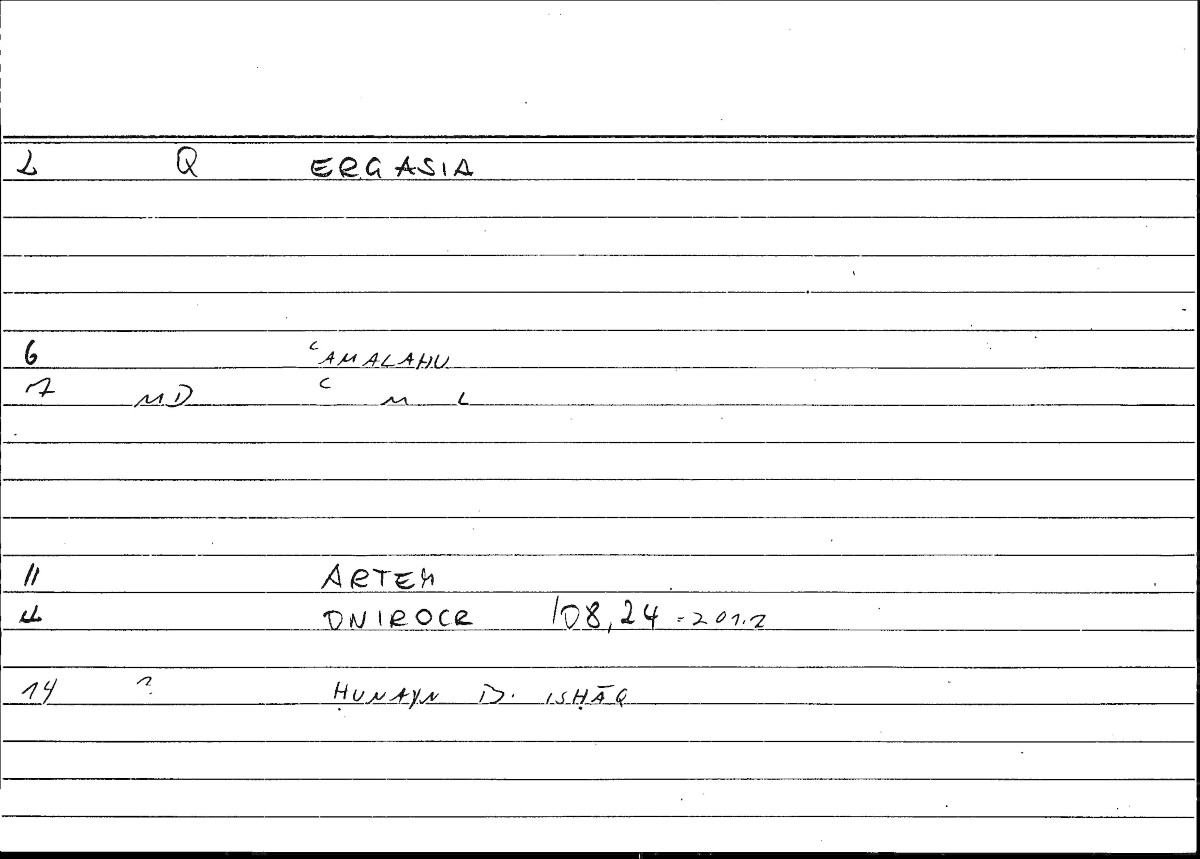 2 Q ERGASIA
6 ʿAMALAHU
7 MD ʿ M L
11 ARTEM
12 ONIROCR 108,24 = 201.2
14 ? ḤUNAYN B. ISḤĀQ